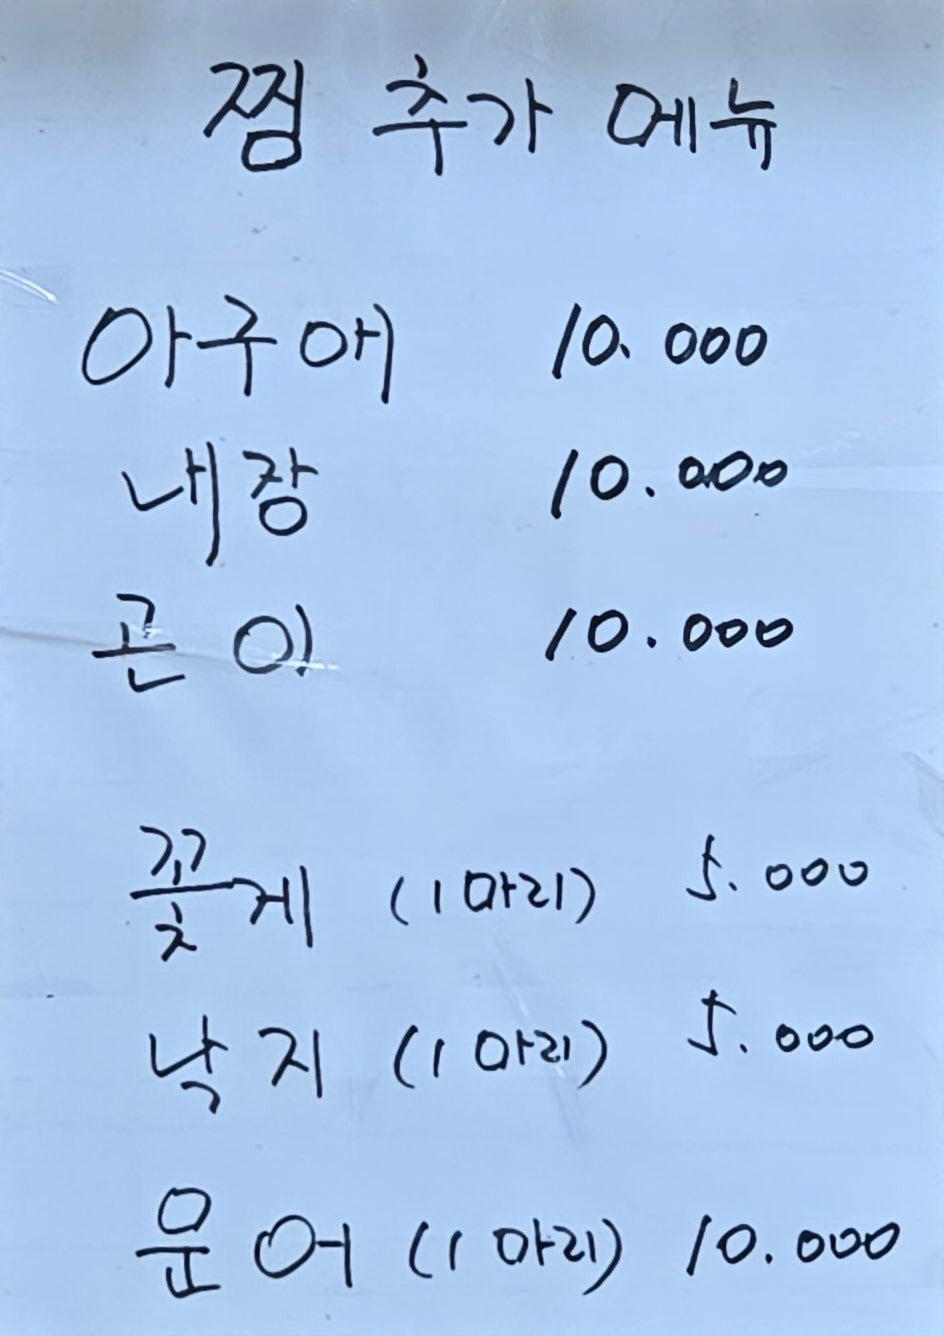 찜 추가 메뉴
아구애 10.000
내장 10.000
곤이 10.000
꽃게 (1마리) 5.000
낙지 (1마리) 5.000
문어 (1마리) 10.000